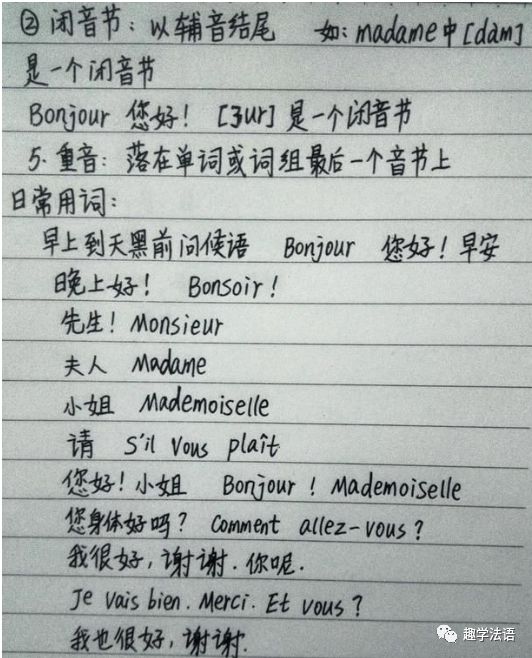 ② 闭音节：以辅音结尾 如：madame中[dam]
是一个闭音节
Bonjour 您好！ [ʒur] 是一个闭音节
5. 重音：落在单词或词组最后一个音节上
日常用词：
早上到天黑前问候语 Bonjour 您好！早安
晚上好！ Bonsoir！
先生！Monsieur
夫人 Madame
小姐 Mademoiselle
请 S'il vous plaît
您好！小姐 Bonjour！Mademoiselle
您身体好吗？ Comment allez-vous？
我很好，谢谢．你呢．
Je vais bien. Merci. Et vous？
我也很好，谢谢．
趣学法语